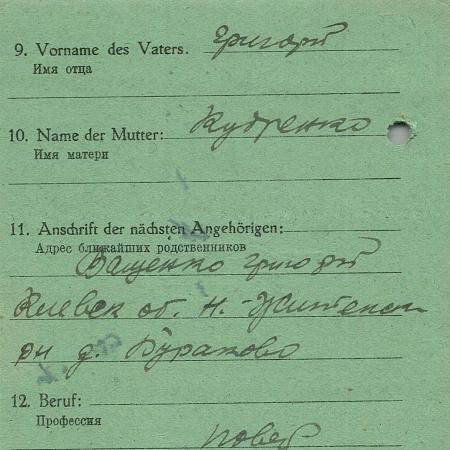 9. Vorname des Vaters. Григорій
Имя отца
10. Name der Mutter: Кудренко
Имя матери
11. Anschrift der nächsten Angehörigen:
Адрес ближайших родственников
Ващенко Григорій
Киевск об. Н-
рн д. Бураково
12. Beruf:
Профессия
повар